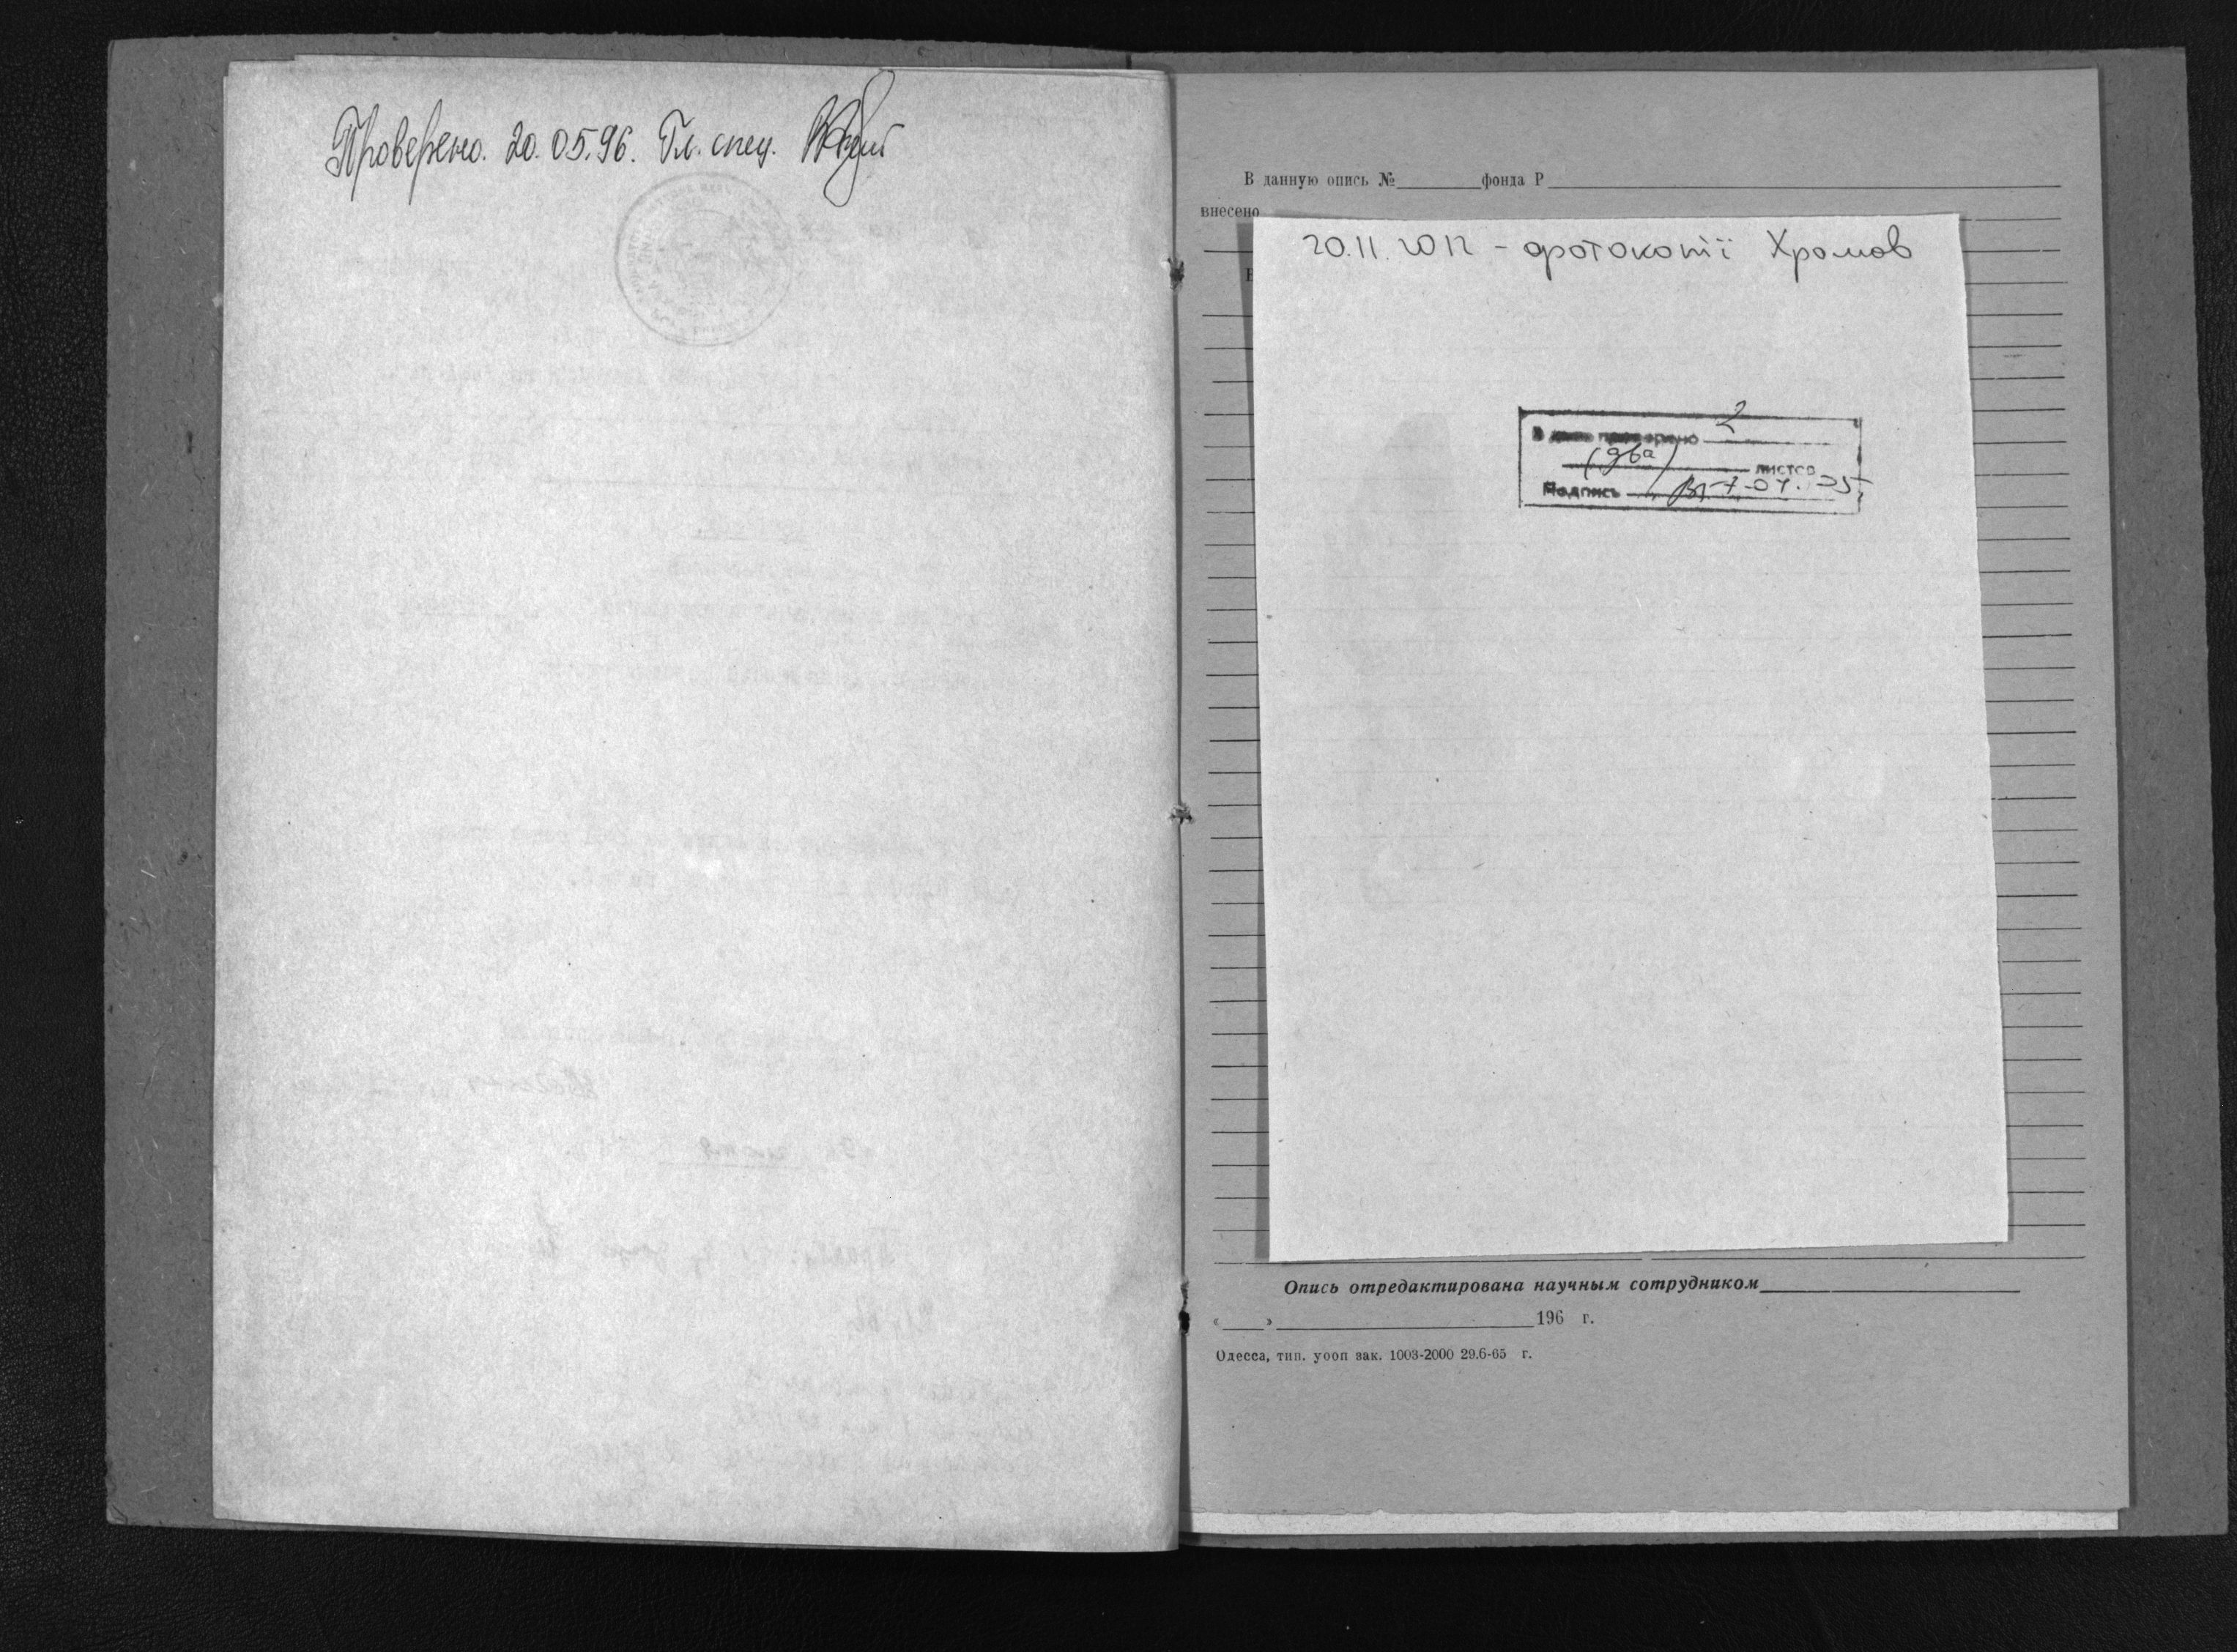 Проверено. 20.05.96. Гл. спец.
В данную опись № фонда Р
внесено
20.11.2012 - фотокопії Хромов
2
(два) листов
Подпись
Опись отредактирована научным сотрудником
« » 196 г.
Одесса, тип. уооп зак. 1003-2000 29.6-65 г.